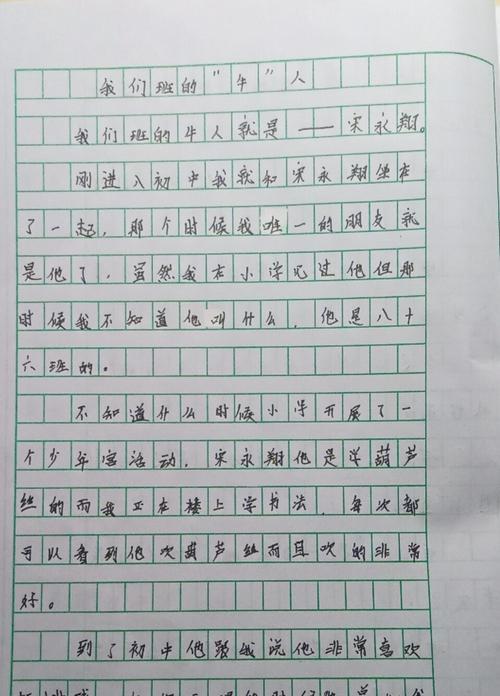 我们班的“牛”人
我们班的牛人就是——宋永翔。
刚进入初中我就和宋永翔坐在
了一起，那个时候我唯一的朋友就
是他了，虽然我在小学见过他但那
时候我不知道他叫什么，他是八十
六班的。
不知道什么时候小学开展了一
个少年宫活动，宋永翔他是学葫芦
丝的而我正在楼上学书法，每次都
可以看到他吹葫芦丝而且吹的非常
好。
到了初中他跟我说他非常喜欢